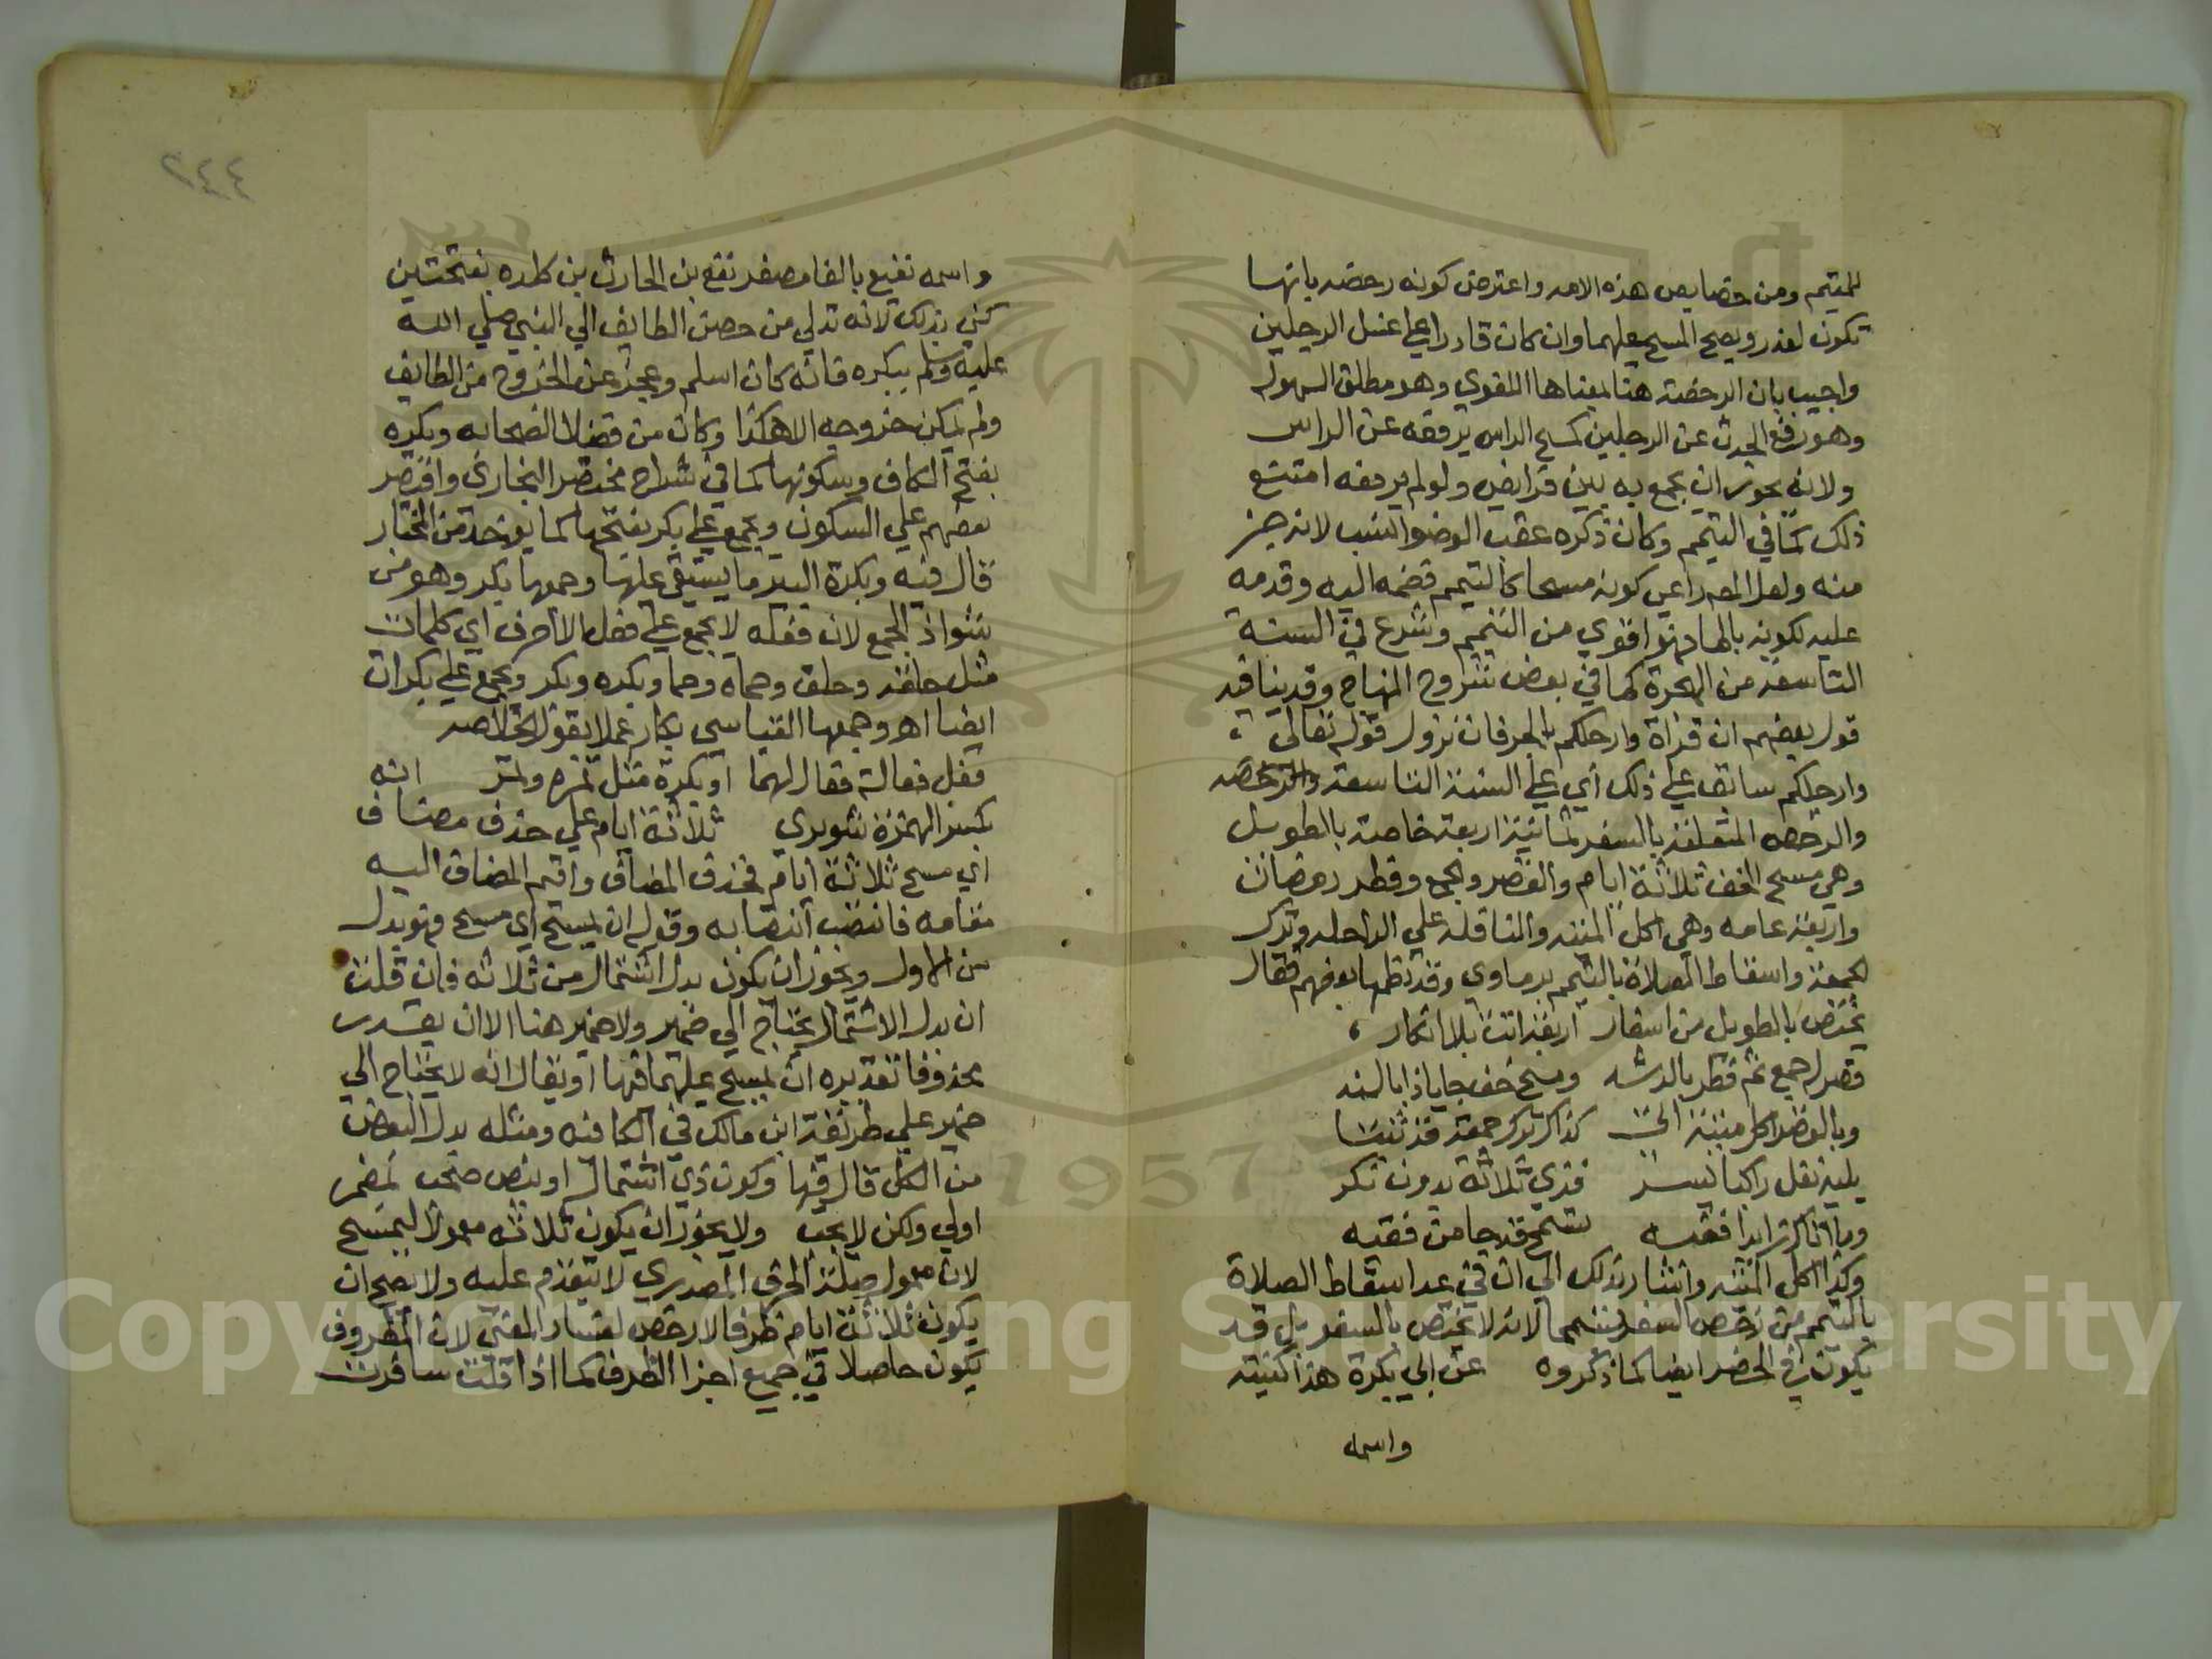 للمتيمم ومن خصايص هذه الامه واعترض كونه رخصه بانها
تكون لعذر ويصح المسح عليهما وان كان قادرا على غسل الرجلين
واجيب بان الرخصة هنا بمعناها اللغوي وهو مطلق السهوله
وهو رفع الحدث عن الرجلين كمسح الراس يرفعه عن الراس
ولانه يجوز ان يجمع به بين فرايض ولو لم يرفعه امتنع
ذلك كما في التيمم وكان ذكره عقب الوضو انسب لانه جز
منه ولعل المص راعي كونه مسحا كالتيمم فضمه اليه وقدمه
عليه لكونه بالما فهو اقوي من التيمم وشرع في السنة
التاسعة من الهجرة كما في بعض شروح المنهاج وقد ينافيه
قول بعضهم ان قراة وارجلكم بالجر فان نزول قوله تعالي
وارجلكم سابق على ذلك أي على السنة التاسعة والرخصه
والرخصه المتعلقة بالسفر ثمانية اربعة خاصة بالطويل
وهي مسح الخف ثلاثة ايام والقصر والجمع وفطر رمضان
واربعة عامه وهي اكل الميته والنافلة علي الراحله وترك
الجمعة واسقاط الصلاة بالتيمم برماوي وقد نظمها بعضهم فقال
يختص بالطويل من اسفار اربعة اتت بلا انكار
قصر جمع ثم فطر بالرشد ومسح خف جا يا ذا بالسند
وبالقصير اكل ميتة اتي كذاك ترك جمعة قد ثبتا
يليه نفل راكبا ليسر فذي ثلاثة بدون نكر
وما انا اكن ابدا فقيه تيمم قد جا من فقيه
وكذا اكل الميته واشار بذلك الي ان في عد اسقاط الصلاة
بالتيمم من رخص السفر تسمحا لانه لا يختص بالسفر بل قد
يكون في الحضر ايضا كما ذكروه عن ابي بكرة هذا كنيته
واسمه
٢٤٤
واسمه نفيع بالفا مصغر نفع بن الحارث بن كلده بفتحتين
كني بذلك لانه تدلي من حصن الطايف الي النبي صلي الله
عليه وسلم ببكره فانه كان اسلم وعجز عن الخروج من الطايف
ولم يمكن خروجه الا هكذا وكان من فضلا الصحابه وبكره
بفتح الكاف وسكونها كما في شراح مختصر البخاري واقتصر
بعضهم علي السكون ويجمع على بكر بفتحها كما يوخذ من المختار
قال فيه وبكرة البير ما يستقي عليها وجمعها بكر وهو من
شواذ الجمع لان فعلة لا يجمع على فعل الا احرف اي كلمات
مثل حلقة وحلق وحماه وحما وبكره وبكر ويجمع علي بكرات
ايضا اهـ وجمعها القياسي بكار عملا بقول الخلاصه
فعل فعالة فعال لهما او بكرة مثل تمره وتمر انه
بكسر الهمزة شوبري ثلاثة ايام علي حذف مضاف
اي مسح ثلاثة ايام فحذف المضاف واقيم المضاف اليه
مقامه فانتصب انتصابه وقوله ان يمسح اي مسح فهو بدل
من الاول ويجوز ان يكون بدل اشتمال من ثلاثه فان قلت
ان بدل الاشتمال يحتاج الي ضمير ولا ضمير هنا الا ان يقدر
محذوفا تقديره ان يمسح عليهما فيها او يقال انه لا يحتاج الي
ضمير علي طريقة ابن مالك في الكافيه ومثله بدل البعض
من الكل قال فيها وكون ذي اشتمال او بعض صحب لمضمر
اولي ولكن لا يجب ولا يجوز ان يكون ثلاثه معمولا ليمسح
لان معمول صلة الحرف المصدري لا يتقدم عليه ولا يصح ان
يكون ثلاثة ايام ظرفا لارخص لفساد المعني لان المظروف
يكون حاصلا في جميع اجزا الظرف كما اذا قلت سافرت
Copyright © King Saud University
1957